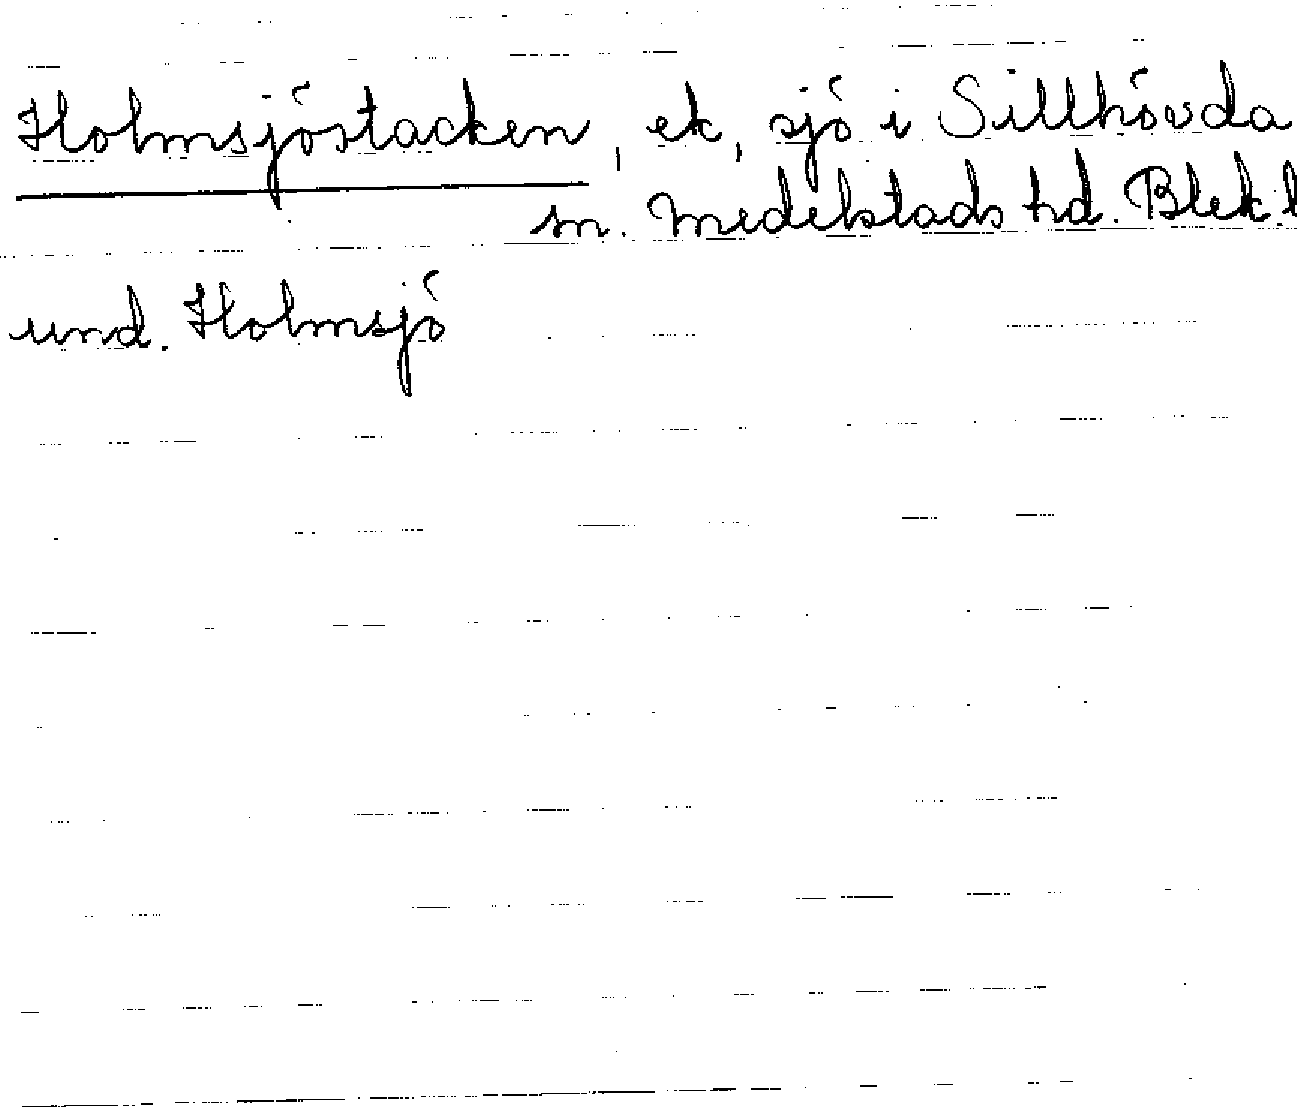 Holmsjöstacken, ek, sjö i Sillhövda
sn. Medelstads hd. Blek.l
und. Holmsjö